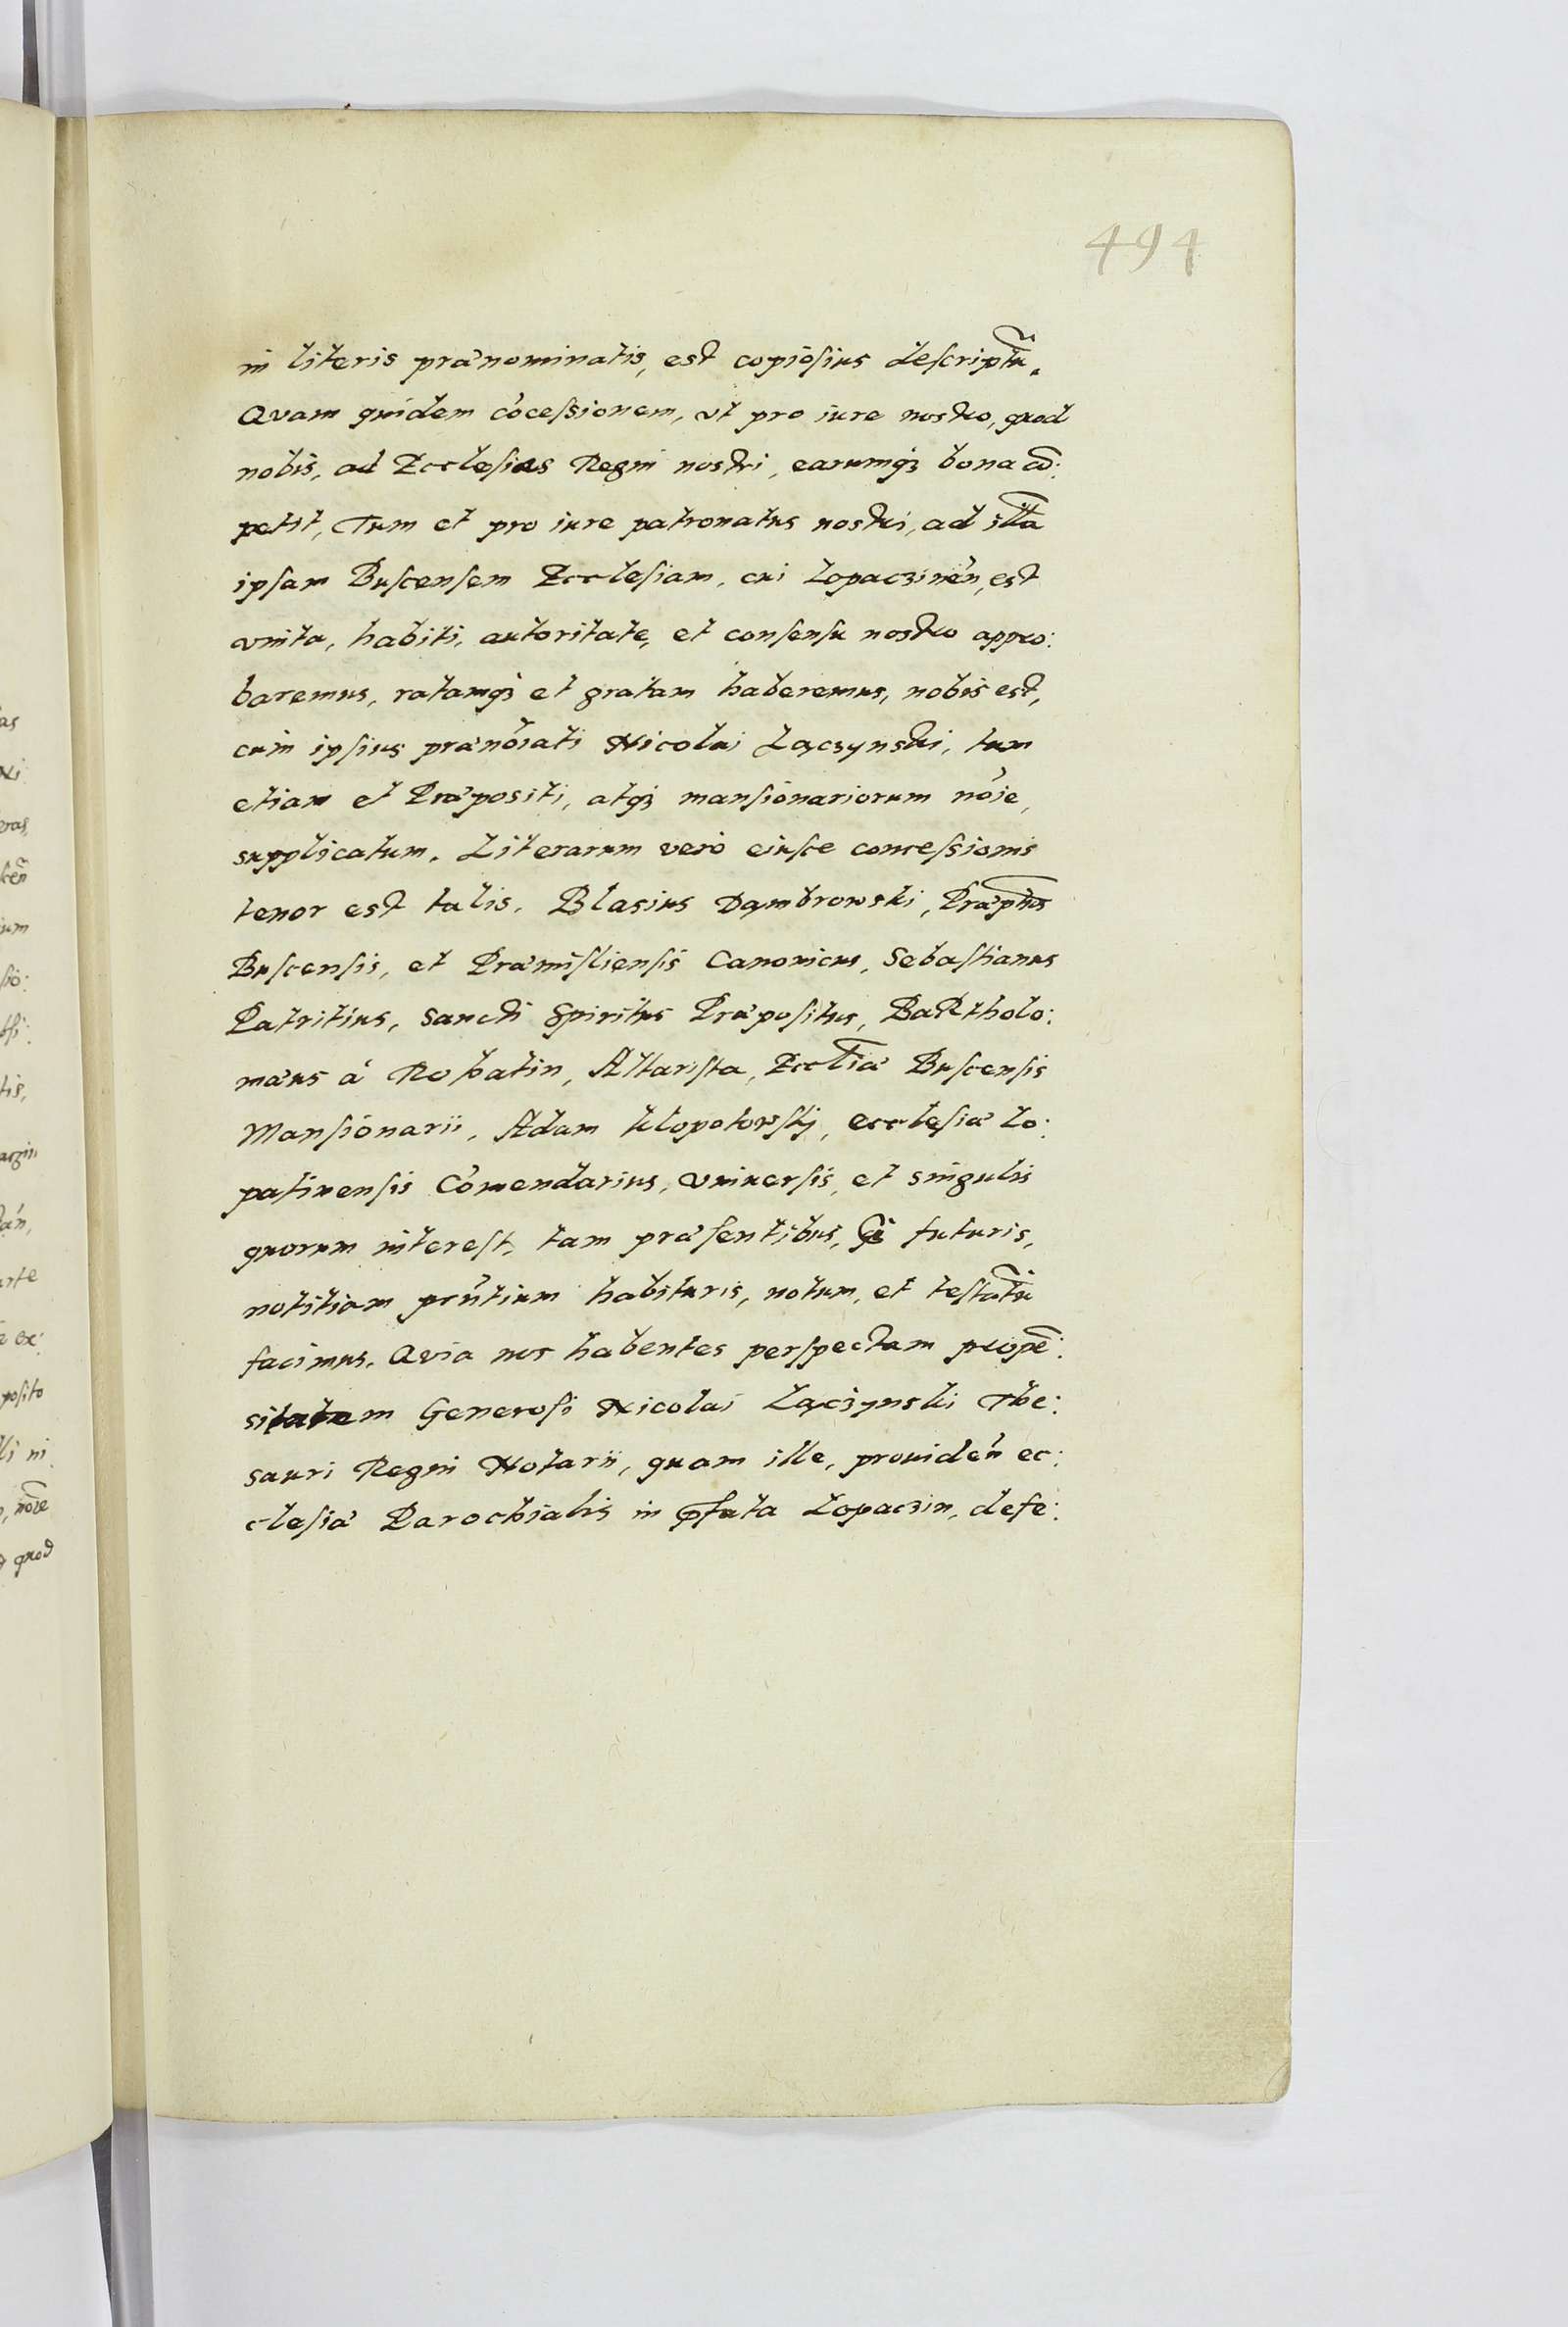 494
in literis prænominatis, est copiosius descriptũ.
Quam quidem cõcessionem, vt pro iure nostro, quod
nobis, ad Ecclesias Regni nostri, earumq3 bona cõ:
petit, Tum et pro iure patronatus nostri, ad illã
ipsam Buscensem Ecclesiam, cui Lopaczineñ, est
vnita, habiti, autoritate, et consensu nostro appro:
baremus, ratamq3 et gratam haberemus, nobis est,
cum ipsius prænõiati Nicolai Lączynski, tum
etiam et Præpositi, atq3 mansionariorum nõie,
supplicatum. Literarum vero eiusce concessionis
tenor est talis. Blasius Dąmbrowski, Præptus
Buscensis, et Præmisliensis Canonicus, Sebastianus
Patritius, Sancti Spiritus Præpositus, Bartholo:
mæus à Rohatin, Altarista, Eccliæ Buscensis
Mansionarii, Adam Klopotowskj, ecclesiæ Lo:
patinensis Cõmendarius, vniuersis, et singulis
quorum interest, tam præsentibus, q̃ futuris,
notitiam prñtium habituris, notum, et testatũ
facimus. Quia nos habentes perspectam propẽ:
sitatem Generosi Nicolai Lączynski The:
sauri Regni Notarii, quam ille, prouideñ ec:
clesiæ Parochialis in pfata Lopaczin, defe: